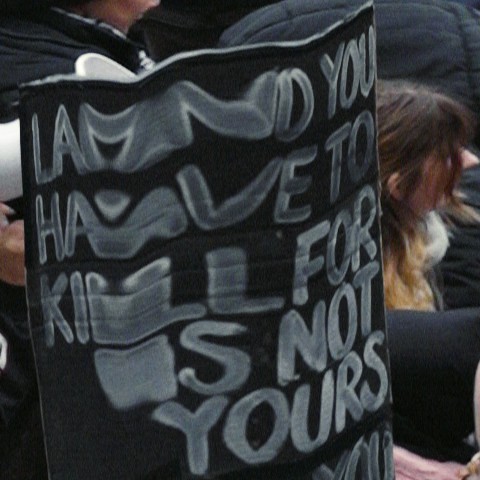 LAND YOU
HAVE TO
KILL FOR
IS NOT
YOURS